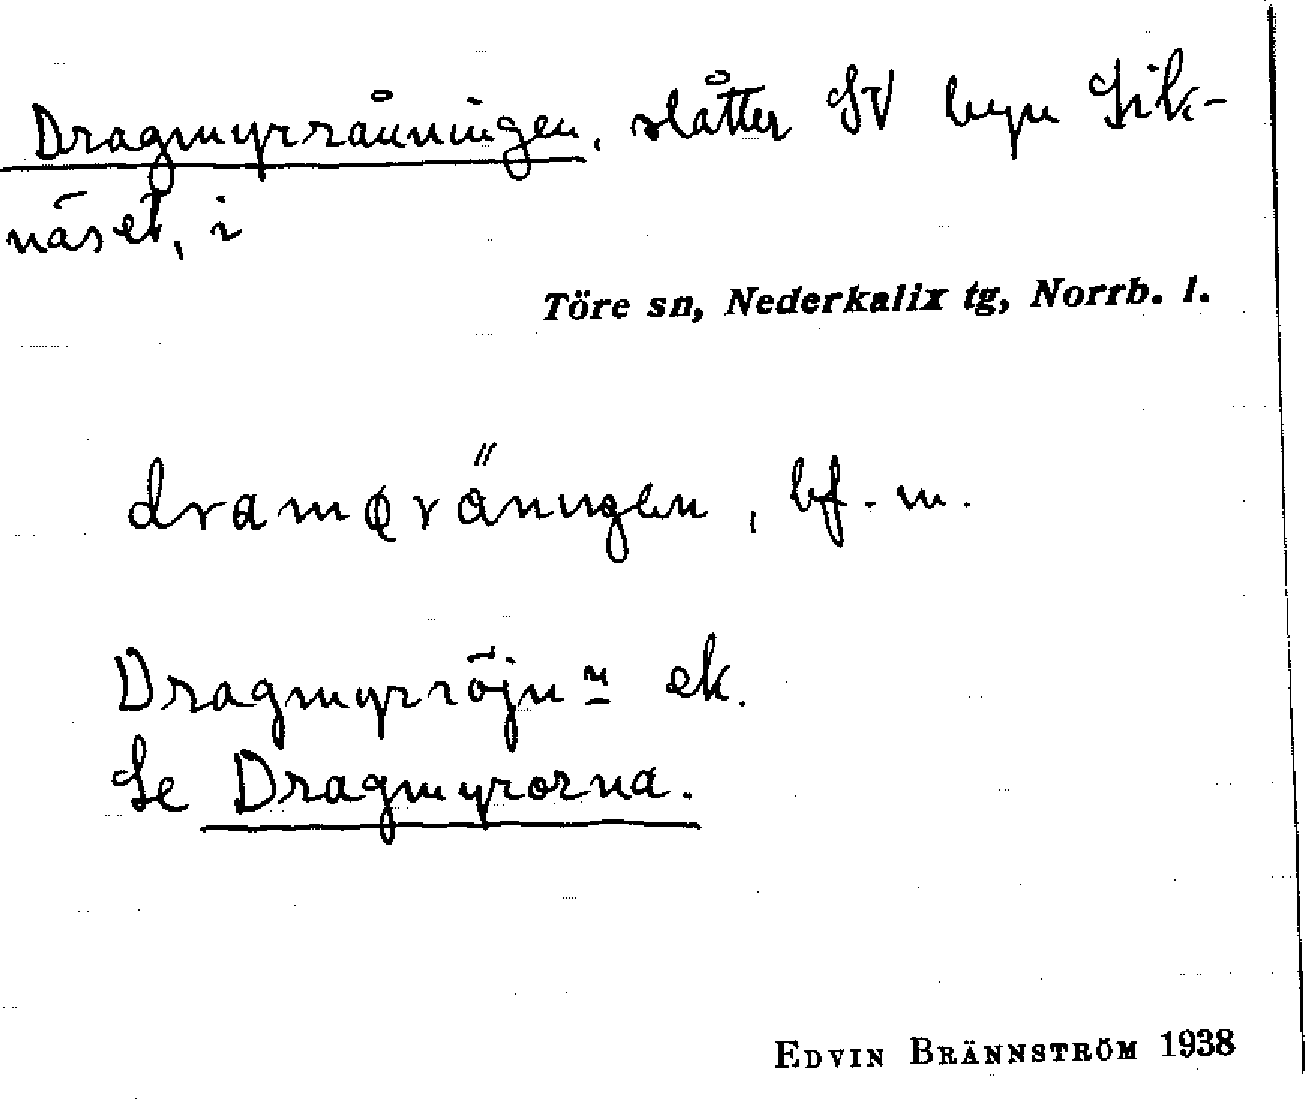 Dragmyrråningen, slåtter SV byn Sik-
näset, i
Töre sn, Nederkalix tg, Norrb. l.
dramørä̋ningen, bf. m.
Dragmyrröjn- ek.
Se Dragmyrorna.
EDVIN BRÄNNSTRÖM 1938